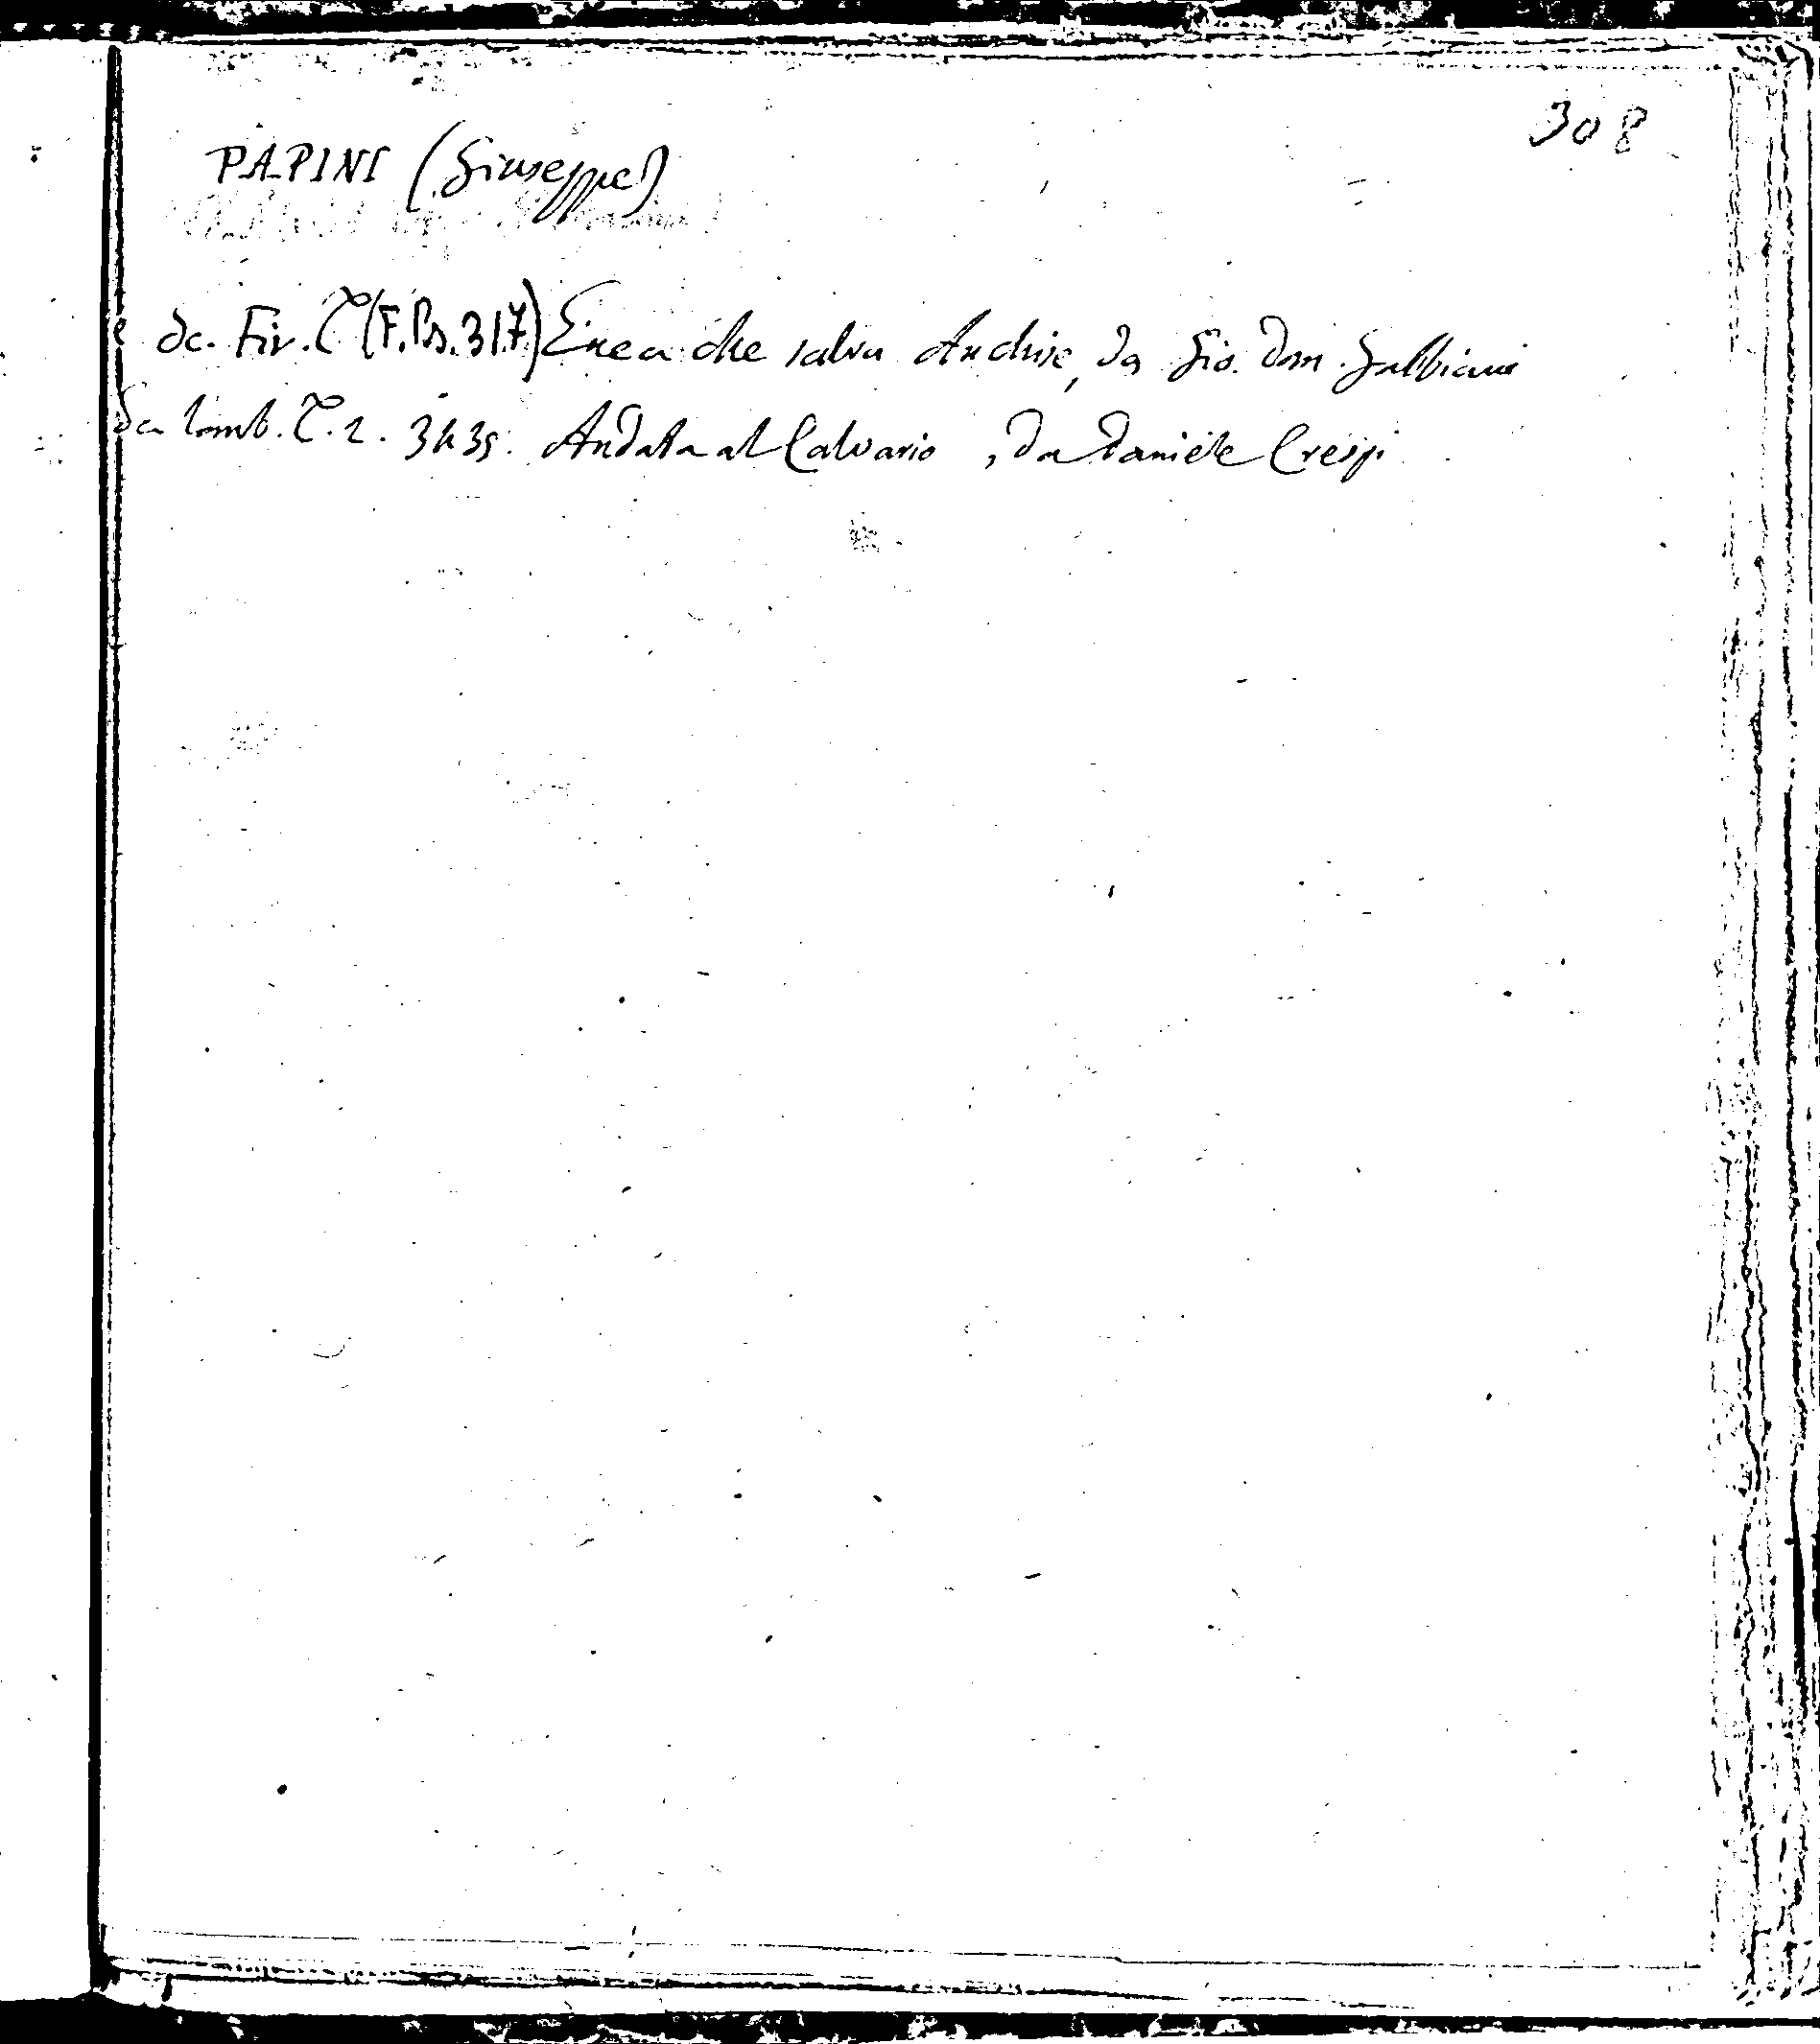 308
PAPINI (Giuseppe)
Sc. Fir. T. (F. Ps. 317) Enea che salva Anchise, da Gio. Dom. Gabbiani
Sc. Lomb. T. 2. 3435. Andata al Calvario, da Daniele Crespi